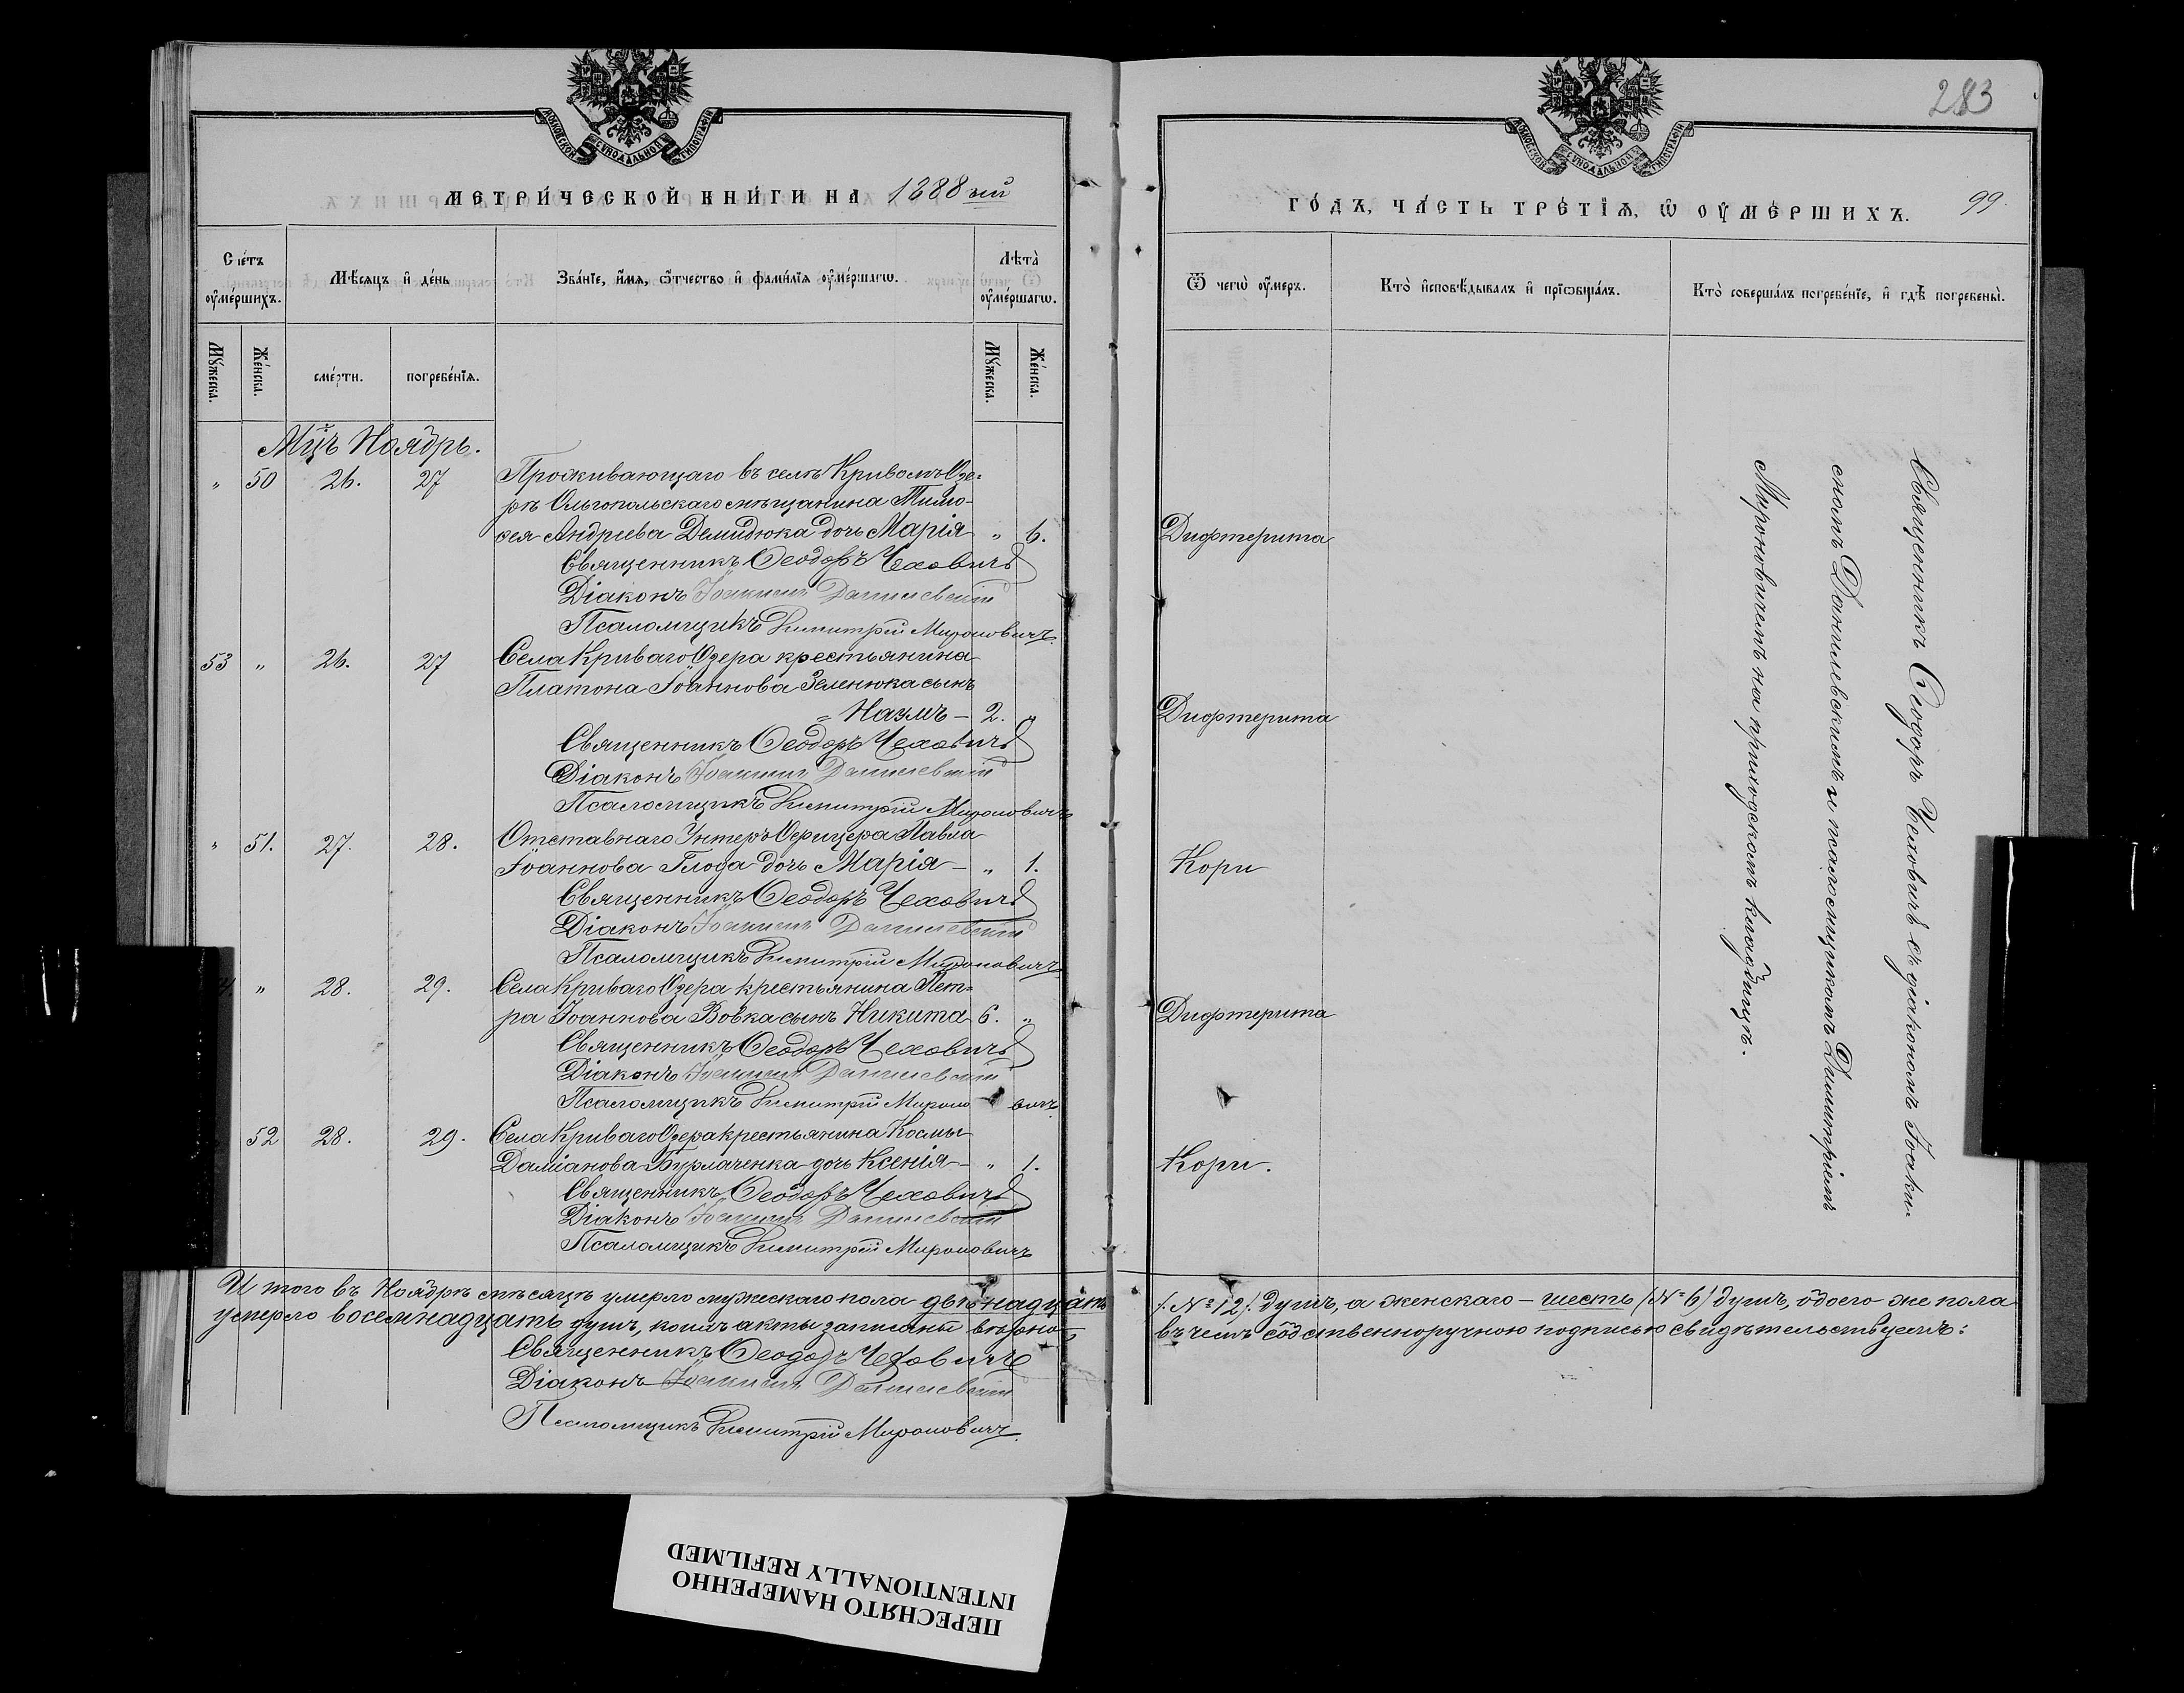 МОСКОВСКОЙ СѴНОДАЛЬНОЙ ТИПОГРАФІИ
МЕТРИ́ЧЕСКОЙ КНИ́ГИ НА 1888 ый
Сче́тъ оу҆ме́ршихъ.
Мѣ́сяцъ и҆ де́нь
Зва́нїе, и҆́мя, ѻ҆́тчество и҆ фами́лїя оу҆ме́ршагѡ.
Лѣта̀ оу҆ме́ршагѡ.
Мꙋ́жеска.
Же́нска.
сме́рти.
погребе́нїя.
Мꙋ́жеска.
Же́нска.
Мцъ Ноябрь.
" 50 26. 27 Проживающаго въ селѣ Кривомъ Озе-
рѣ Ольгопольскаго мѣщанина Тимо-
ѳея Андреева Демидюка дочь Марія " 6.
Священникъ Ѳеодоръ Чеховичъ
Діаконъ Іоакимъ Данилевскій
Псаломщикъ Димитрій Мироновичъ
53 " 26. 27 Села Криваго Озера крестьянина
Платона Іоаннова Зеленюка сынъ
Наумъ - 2. "
Священникъ Ѳеодоръ Чеховичъ
Діаконъ Іоакимъ Данилевскій
Псаломщикъ Димитрій Мироновичъ
" 51. 27. 28. Отставнаго Унтеръ Офицера Павла
Іоаннова Глода дочь Марія - " 1.
Священникъ Ѳеодоръ Чеховичъ
Діаконъ Іоакимъ Данилевскій
Псаломщикъ Димитрій Мироновичъ
" 28. 29. Села Криваго Озера крестьянина Пет-
ра Іоаннова Вовка сынъ Никита 6. "
Священникъ Ѳеодоръ Чеховичъ
Діаконъ Іоакимъ Данилевскій
Псаломщикъ Димитрій Мироновичъ
52 28. 29. Села Криваго Озера крестьянина Космы
Даміанова Бурлаченка дочь Ксенія - " 1.
Священникъ Ѳеодоръ Чеховичъ
Діаконъ Іоакимъ Данилевскій
Псаломщикъ Димитрій Мироновичъ
И того въ Ноябрѣ мѣсяцѣ умерло мужескаго пола двѣнадцать
умерло восемнадцать душъ, коихъ акты записаны вѣрно,
Священникъ Ѳеодоръ Чеховичъ
Діаконъ Іоакимъ Данилевскій
Псаломщикъ Димитрій Мироновичъ
283
МОСКОВСКОЙ СѴНОДАЛЬНОЙ ТИПОГРАФІИ
ГО́ДЪ, ЧА́СТЬ ТРЕ́ТЇЯ, Ѡ҆ ОУ҆МЕ́РШИХЪ. 99.
Ѿ чегѡ̀ оу҆́меръ.
Кто̀ и҆сповѣ́дывалъ и҆ прїѡбща́лъ.
Кто̀ соверша́лъ погребе́нїе, и҆ гдѣ̀ погребены̀.
Дифтерита
Дифтерита
Кори
Дифтерита
Кори.
Священникъ Ѳеодоръ Чеховичъ съ діакономъ Іоаки-
момъ Данилевскимъ и псаломщикомъ Димитріемъ
Мироновичемъ на приходскомъ кладбищѣ.
/. № 12/. душъ, а женскаго - шесть /№ 6/ душъ, обоего же пола
въ чемъ собственноручною подписью свидѣтельствуемъ:
ПЕРЕСНЯТО НАМЕРЕННО
INTENTIONALLY REFILMED